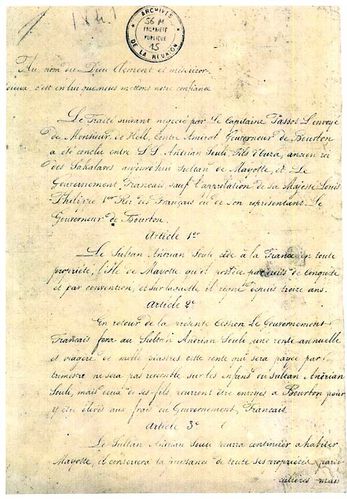 1841
ARCHIVES
56 M
PROPRIÉTÉ
PUBLIQUE
15
DE LA RÉUNION
Au nom du Dieu clement et
c'est en lui que nous mettons notre confiance
Le Traité suivant negocié par le Capitaine Passot Envoyé
de Monsieur de Hell, Contre Amiral Gouverneur de Bourbon
a été conclu entre S.S. Andrian Souli fils d'Oura, ancien roi
des Sakalaves aujourd'hui Sultan de Mayotte, et Le
Gouvernement Français sauf l'approbation de sa Majesté Louis
Philippe 1er Roi des Français ou de son représentant Le
Gouverneur de Bourbon.
Article 1er
Le Sultan Andrian Souli cède à la France en toute
propriété, l'isle de Mayotte qu'il possède par droits de conquête
et par convention, et sur laquelle il règne depuis treize ans.
Article 2e
En retour de la présente Cession Le Gouvernement
Français fera au Sultan Andrian Souli, une rente annuelle
et viagère de mille piastres cette rente qui sera payée par
trimestre ne sera pas reversible sur les enfans du Sultan Andrian
Souli, mais deux de ses fils pourront être envoyés à Bourbon pour
y être élevés aux frais du Gouvernement Français.
Article 3e
Le Sultan Andrian Souli pourra continuer à habiter
Mayotte, et conservera la jouissance de toutes ses propriétés parti
culières mais